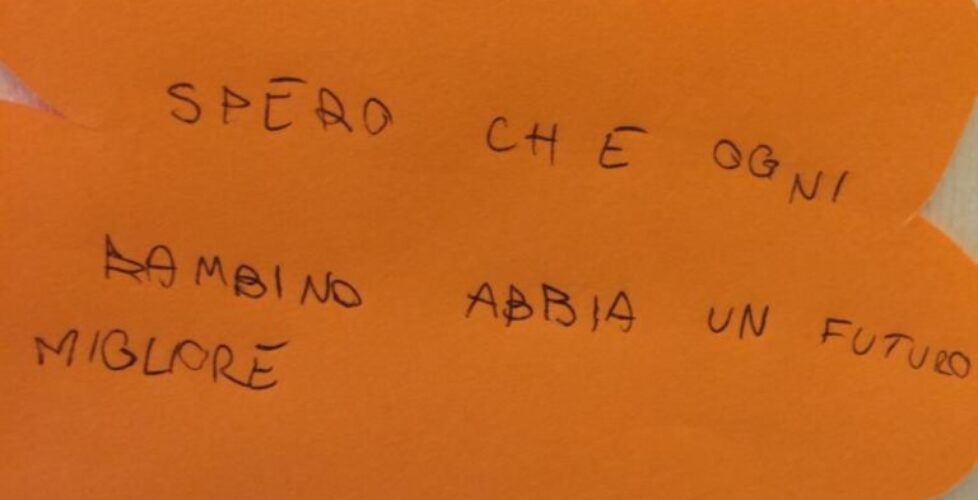 SPERO CHE OGNI
BAMBINO ABBIA UN FUTURO
MIGLIORE